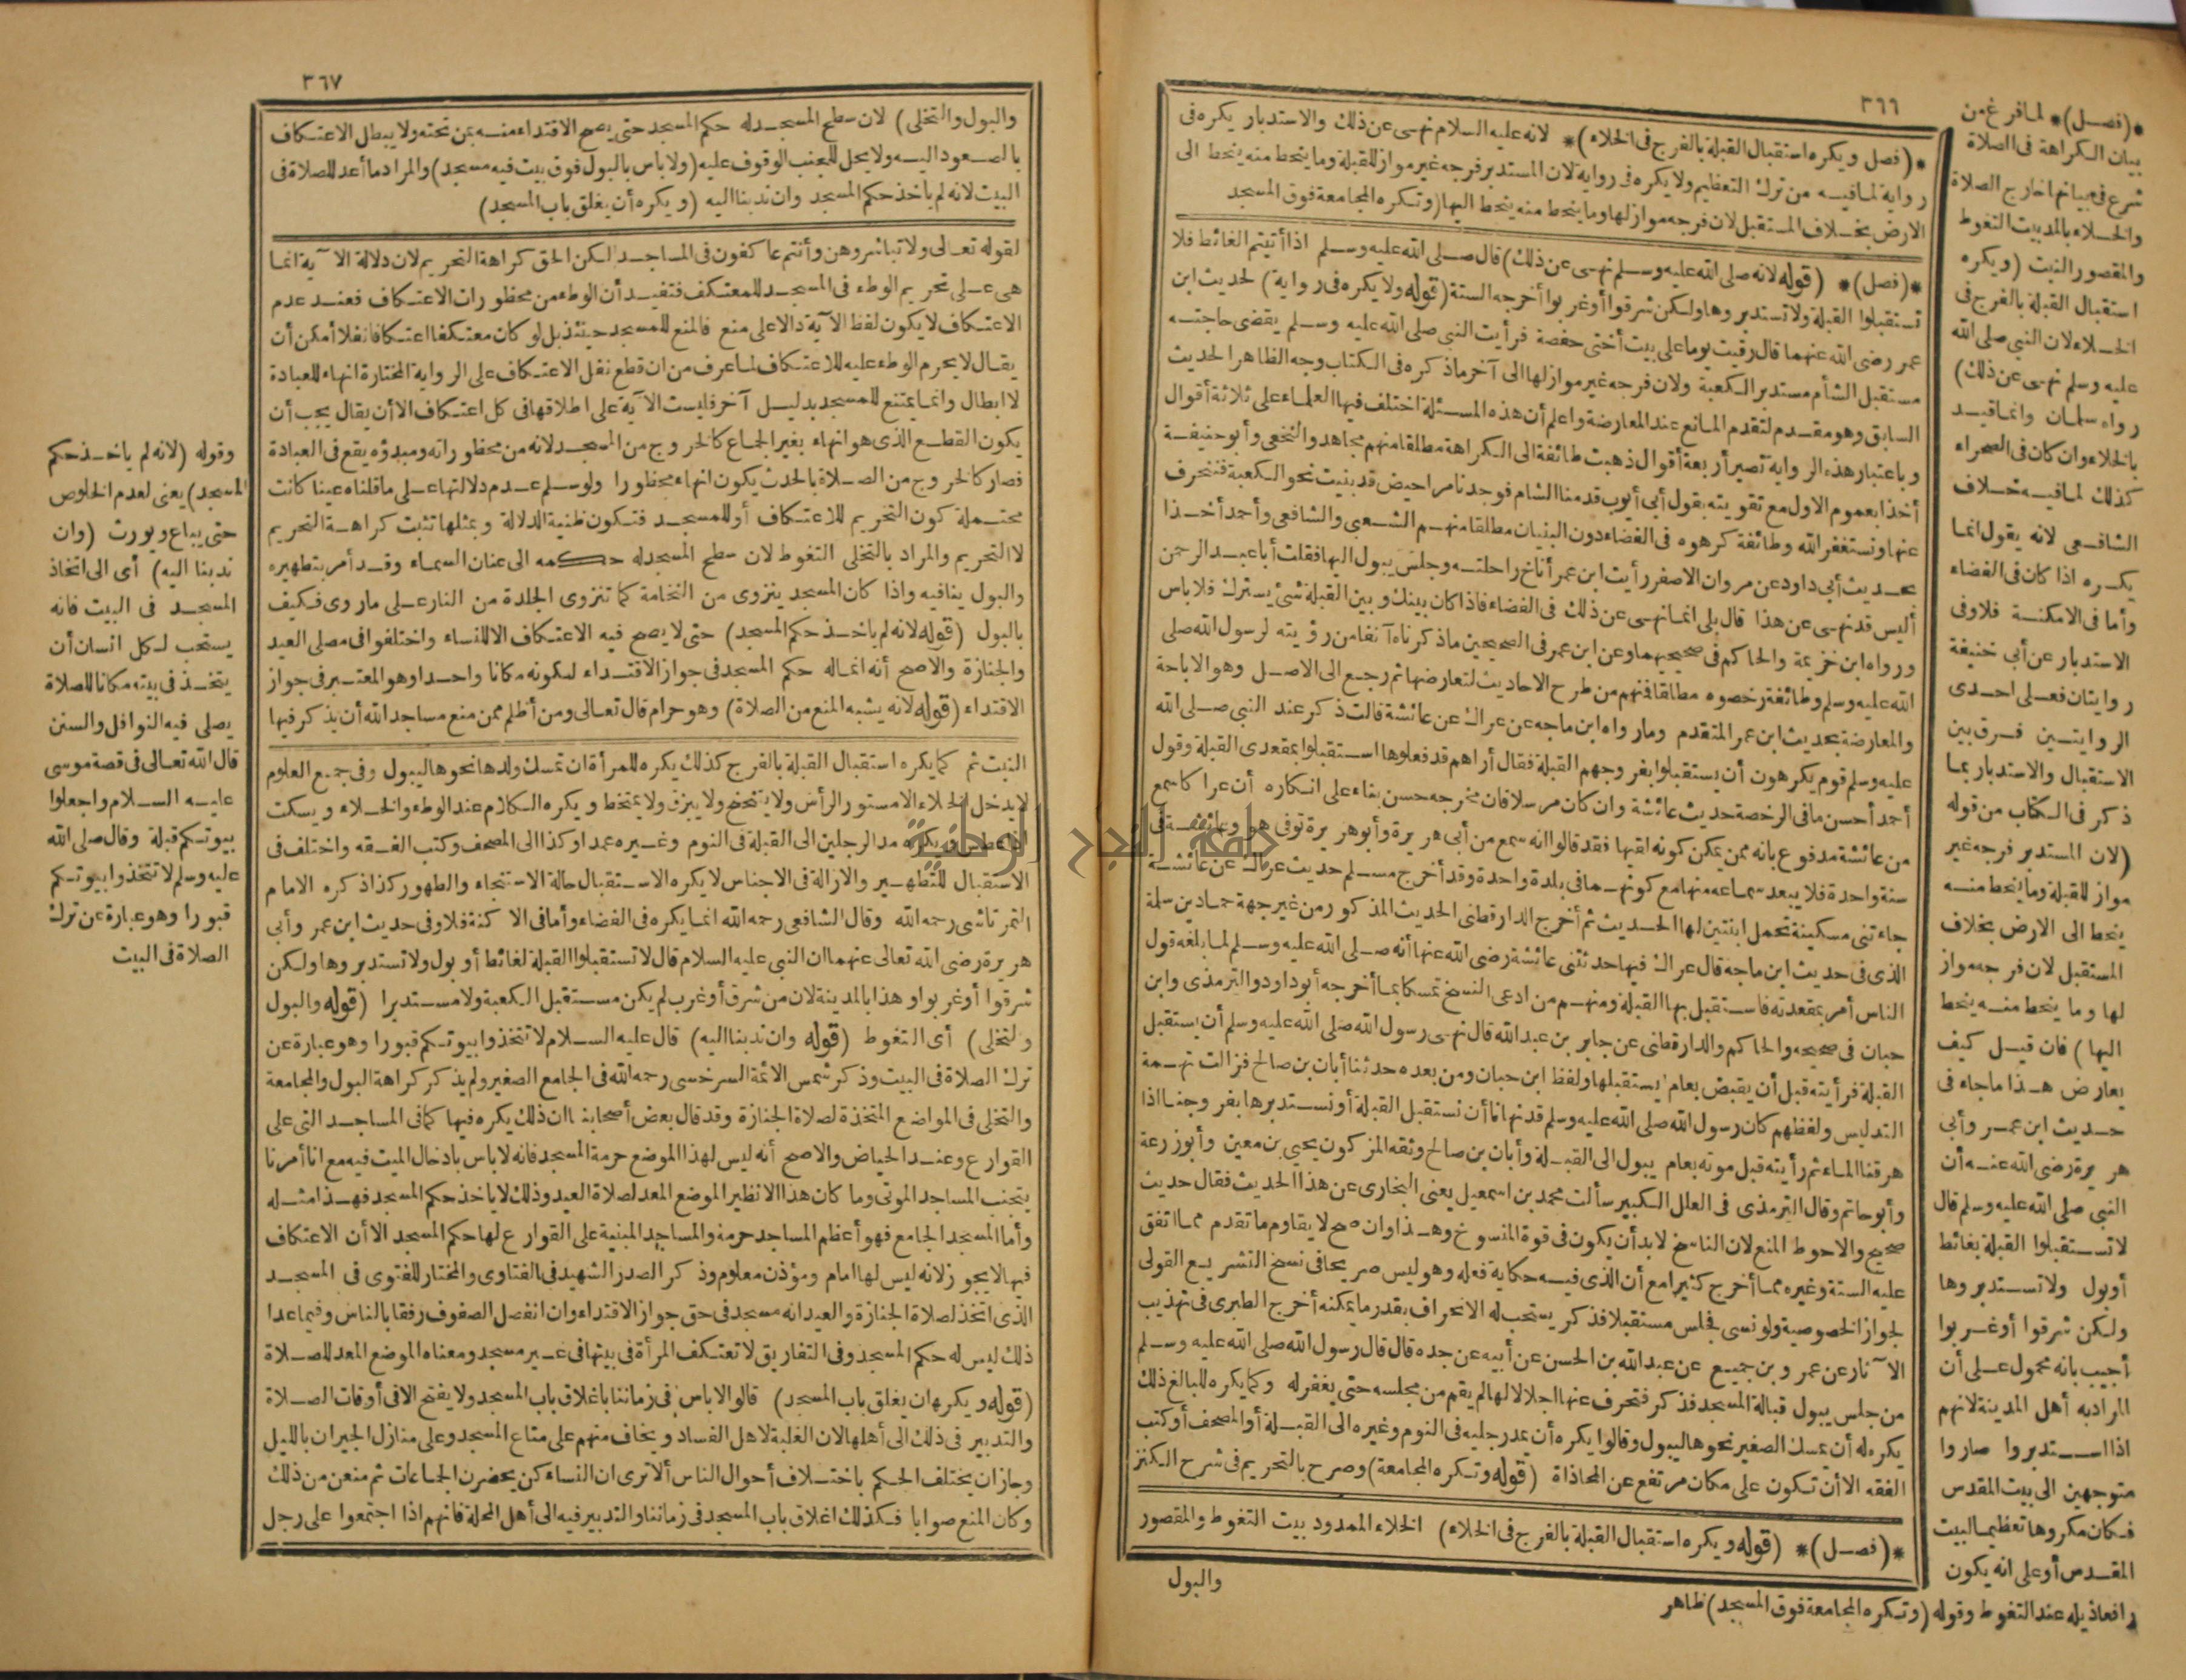 ٣٦٦
*(فصل ويكره استقبال القبلة بالفرج فى الخلاء)* لانه عليه السلام نهى عن ذلك والاستدبار يكره فى
رواية لما فيه من ترك التعظيم ولا يكره فى رواية لان المستدبر فرجه غير مواز للقبلة وما ينحط منه ينحط الى
الارض بخلاف المستقبل لان فرجه مواز لها وما ينحط منه ينحط اليها (وتكره المجامعة فوق المسجد
*(فصل)* (قوله لانه صلى الله عليه وسلم نهى عن ذلك) قال صلى الله عليه وسلم اذا أتيتم الغائط فلا
تستقبلوا القبلة ولا تستدبروها ولكن شرقوا أو غربوا أخرجه الستة (قوله ولا يكره فى رواية) لحديث ابن
عمر رضى الله عنهما قال رقيت يوما على بيت أختى حفصة فرأيت النبى صلى الله عليه وسلم يقضى حاجته
مستقبل الشأم مستدبر الكعبة ولان فرجه غير مواز لها الى آخر ما ذكره فى الكتاب وجه الظاهر الحديث
السابق وهو مقدم لتقدم المانع عند المعارضة واعلم أن هذه المسئلة اختلف فيها العلماء على ثلاثة أقوال
وباعتبار هذه الرواية تصير أربعة أقوال ذهبت طائفة الى الكراهة مطلقا منهم مجاهد والنخعى وأبو حنيفة
أخذا بعموم الاول مع تقويته بقول أبى أيوب قدمنا الشام فوجدنا مراحيض قد بنيت نحو الكعبة فننحرف
عنها ونستغفر الله وطائفة كرهوه فى الفضاء دون البنيان مطلقا منهم الشعبى والشافعى وأحمد أخذا
بحديث أبى داود عن مروان الاصفر رأيت ابن عمر أناخ راحلته وجلس يبول اليها فقلت أبا عبد الرحمن
أليس قد نهى عن هذا قال بلى انما نهى عن ذلك فى الفضاء فاذا كان بينك وبين القبلة شئ يسترك فلا باس
ورواه ابن خزيمة والحاكم فى صحيحيهما وعن ابن عمر فى الصحيحين ما ذكرناه آنفا من رؤيته لرسول الله صلى
الله عليه وسلم وطائفة رخصوه مطلقا فمنهم من طرح الاحاديث لتعارضها ثم رجع الى الاصل وهو الاباحة
والمعارضة بحديث ابن عمر المتقدم وما رواه ابن ماجه عن عراك عن عائشة قالت ذكر عند النبى صلى الله
عليه وسلم قوم يكرهون أن يستقبلوا بفروجهم القبلة فقال أراهم قد فعلوها استقبلوا بمقعدى القبلة وقول
أحمد أحسن ما فى الرخصة حديث عائشة وان كان مرسلا فان مخرجه حسن بناء على انكاره أن عراكا سمع
من عائشة مدفوع بانه ممن يمكن كونه لقيها فقد قالوا انه سمع من أبى هريرة وأبو هريرة توفى هو وعائشة فى
سنة واحدة فلا يبعد سماعه منها مع كونهما فى بلدة واحدة وقد أخرج مسلم حديث عراك عن عائشة
جاءتنى مسكينة تحمل ابنتين لها الحديث ثم أخرج الدارقطنى الحديث المذكور من غير جهة حماد بن سلمة
الذى فى حديث ابن ماجه قال عراك فيها حدثتنى عائشة رضى الله عنها أنه صلى الله عليه وسلم لما بلغه قول
الناس أمر بمقعدته فاستقبل بها القبلة ومنهم من ادعى النسخ تمسكا بما أخرجه أبو داود والترمذى وابن
حبان فى صحيحه والحاكم والدارقطنى عن جابر بن عبد الله قال نهى رسول الله صلى الله عليه وسلم أن يستقبل
القبلة فرأيته قبل أن يقبض بعام يستقبلها ولفظ ابن حبان ومن بعده حدثنا أبان بن صالح فزالت تهمة
التدليس ولفظهم كان رسول الله صلى الله عليه وسلم قد نهانا أن نستقبل القبلة أو نستدبرها بفروجنا اذا
هرقنا الماء ثم رأيته قبل موته بعام يبول الى القبلة وأبان بن صالح وثقه المزكون يحيى بن معين وأبو زرعة
وأبو حاتم وقال الترمذى فى العلل الكبير سألت محمد بن اسمعيل يعنى البخارى عن هذا الحديث فقال حديث
صحيح والاحوط المنع لان الناسخ لا بد أن يكون فى قوة المنسوخ وهذا وان صح لا يقاوم ما تقدم مما اتفق
عليه الستة وغيره مما أخرج كثير مع أن الذى فيه حكاية فعله وهو ليس صريحا فى نسخ التشريع القولى
لجواز الخصوصية ولو نسى فجلس مستقبلا فذكر يستحب له الانحراف بقدر ما يمكنه أخرج الطبرى فى تهذيب
الآثار عن عمرو بن جميع عن عبد الله بن الحسن عن أبيه عن جده قال قال رسول الله صلى الله عليه وسلم
من جلس يبول قبالة المسجد فذكر فتحرف عنها اجلالا لها لم يقم من مجلسه حتى يغفر له وكما يكره للبالغ ذلك
يكره له أن يمسك الصغير نحوها ليبول وقالوا يكره أن يمد رجليه فى النوم وغيره الى القبلة أو المصحف أو كتب
الفقه الا أن تكون على مكان مرتفع عن المحاذاة (قوله وتكره المجامعة) وصرح بالتحريم فى شرح الكنز
*(فصل)* (قوله ويكره استقبال القبلة بالفرج فى الخلاء) الخلاء الممدود بيت التغوط والمقصور
والبول
*(فصل)* لما فرغ من
بيان الكراهة فى الصلاة
شرع فى بيانها خارج الصلاة
والخلاء بالمد بيت التغوط
والمقصور النبت (ويكره
استقبال القبلة بالفرج فى
الخلاء لان النبى صلى الله
عليه وسلم نهى عن ذلك)
رواه سلمان وانما قيد
بالخلاء وان كان فى الصحراء
كذلك لما فيه خلاف
الشافعى لانه يقول انما
يكره اذا كان فى الفضاء
وأما فى الامكنة فلا وفى
الاستدبار عن أبى حنيفة
روايتان فعلى احدى
الروايتين فرق بين
الاستقبال والاستدبار بما
ذكر فى الكتاب من قوله
(لان المستدبر فرجه غير
مواز للقبلة وما ينحط منه
ينحط الى الارض بخلاف
المستقبل لان فرجه مواز
لها وما ينحط منه ينحط
اليها) فان قيل كيف
يعارض هذا ما جاء فى
حديث ابن عمر وأبى
هريرة رضى الله عنه أن
النبى صلى الله عليه وسلم قال
لا تستقبلوا القبلة بغائط
أو بول ولا تستدبروها
ولكن شرقوا أو غربوا
أجيب بانه محمول على أن
المراد به أهل المدينة لانهم
اذا استدبروا صاروا
متوجهين الى بيت المقدس
فكان مكروها تعظيما لبيت
المقدس أو على انه يكون
رافعا ذيله عند التغوط وقوله (وتكره المجامعة فوق المسجد) ظاهر
٣٦٧
والبول والتخلى) لان سطح المسجد له حكم المسجد حتى يصح الاقتداء منه بمن تحته ولا يبطل الاعتكاف
بالصعود اليه ولا يحل للجنب الوقوف عليه (ولا باس بالبول فوق بيت فيه مسجد) والمراد ما أعد للصلاة فى
البيت لانه لم يأخذ حكم المسجد وان ندبنا اليه (ويكره أن يغلق باب المسجد)
لقوله تعالى ولا تباشروهن وأنتم عاكفون فى المساجد لكن الحق كراهة التحريم لان دلالة الآية انما
هى على تحريم الوطء فى المسجد للمعتكف فتفيد أن الوطء من محظورات الاعتكاف فعند عدم
الاعتكاف لا يكون لفظ الآية دالا على منع فالمنع للمسجد حينئذ بل لو كان معتكفا اعتكافا نفلا أمكن أن
يقال لا يحرم الوطء عليه للاعتكاف لما عرف من ان قطع نفل الاعتكاف على الرواية المختارة انهاء للعبادة
لا ابطال وانما يمتنع للمسجد بدليل آخر فليست الآية على اطلاقها فى كل اعتكاف الا أن يقال يجب أن
يكون القطع الذى هو انهاء بغير الجماع كالخروج من المسجد لانه من محظوراته ومبدؤه يقع فى العبادة
فصار كالخروج من الصلاة بالحدث يكون انهاء محظورا ولو سلم عدم دلالتها على ما قلناه عينا كانت
محتملة كون التحريم للاعتكاف أو للمسجد فتكون ظنية الدلالة وبمثلها تثبت كراهة التحريم
لا التحريم والمراد بالتخلى التغوط لان سطح المسجد له حكمه الى عنان السماء وقد أمر بتطهيره
والبول ينافيه واذا كان المسجد ينزوى من النخامة كما تنزوى الجلدة من النار على ما روى فكيف
بالبول (قوله لانه لم ياخذ حكم المسجد) حتى لا يصح فيه الاعتكاف الا للنساء واختلفوا فى مصلى العيد
والجنازة والاصح أنه انما له حكم المسجد فى جواز الاقتداء لكونه مكانا واحدا وهو المعتبر فى جواز
الاقتداء (قوله لانه يشبه المنع من الصلاة) وهو حرام قال تعالى ومن أظلم ممن منع مساجد الله أن يذكر فيها
النبت ثم كما يكره استقبال القبلة بالفرج كذلك يكره للمرأة ان تمسك ولدها نحوها ليبول وفى جميع العلوم
لا يدخل الخلاء الا مستور الرأس ولا يتنحنح ولا يبزق ولا يمتخط ويكره الكلام عند الوطء والخلاء ويسكت
اذا عطس ويكره مد الرجلين الى القبلة فى النوم وغيره عمدا وكذا الى المصحف وكتب الفقه واختلف فى
الاستقبال للتطهير والازالة فى الاجناس لا يكره الاستقبال حالة الاستنجاء والطهور كذا ذكره الامام
التمرتاشى رحمه الله وقال الشافعى رحمه الله انما يكره فى الفضاء وأما فى الا كنة فلا وفى حديث ابن عمر وأبى
هريرة رضى الله تعالى عنهما ان النبى عليه السلام قال لا تستقبلوا القبلة لغائط أو بول ولا تستدبروها ولكن
شرقوا أو غربوا وهذا بالمدينة لان من شرق أو غرب لم يكن مستقبل الكعبة ولا مستدبرا (قوله والبول
والتخلى) أى التغوط (قوله وان ندبنا اليه) قال عليه السلام لا تتخذوا بيوتكم قبورا وهو عبارة عن
ترك الصلاة فى البيت وذكر شمس الائمة السرخسى رحمه الله فى الجامع الصغير ولم يذكر كراهة البول والمجامعة
والتخلى فى المواضع المتخذة لصلاة الجنازة وقد قال بعض أصحابنا ان ذلك يكره فيها كما فى المساجد التى على
القوارع وعند الحياض والاصح أنه ليس لهذا الموضع حرمة المسجد فانه لا باس بادخال الميت فيه مع انا أمرنا
بتجنب المساجد الموتى وما كان هذا الا نظير الموضع المعد لصلاة العيد وذلك لا ياخذ حكم المسجد فهذا مثله
وأما المسجد الجامع فهو أعظم المساجد حرمة والمساجد المبنية على القوارع لها حكم المسجد الا أن الاعتكاف
فيها لا يجوز لانه ليس لها امام ومؤذن معلوم وذكر الصدر الشهيد فى الفتاوى والمختار للفتوى فى المسجد
الذى اتخذ لصلاة الجنازة والعيد انه مسجد فى حق جواز الاقتداء وان انفصل الصفوف رفقا بالناس وفيما عدا
ذلك ليس له حكم المسجد وفى التفاريق لا تعتكف المرأة فى بيتها فى غير مسجد ومعناه الموضع المعد للصلاة
(قوله ويكره ان يغلق باب المسجد) قالوا لا باس فى زماننا باغلاق باب المسجد ولا يفتح الا فى أوقات الصلاة
والتدبير فى ذلك الى أهلها لان الغلبة لاهل الفساد ويخاف منهم على متاع المسجد وعلى منازل الجيران بالليل
وجاز ان يختلف الحكم باختلاف أحوال الناس ألا ترى ان النساء كن يحضرن الجماعات ثم منعن من ذلك
وكان المنع صوابا فكذلك اغلاق باب المسجد فى زماننا والتدبير فيه الى أهل المحلة فانهم اذا اجتمعوا على رجل
وقوله (لانه لم ياخذ حكم
المسجد) يعنى لعدم الخلوص
حتى يباع ويورث (وان
ندبنا اليه) أى الى اتخاذ
المسجد فى البيت فانه
يستحب لكل انسان أن
يتخذ فى بيته مكانا للصلاة
يصلى فيه النوافل والسنن
قال الله تعالى فى قصة موسى
عليه السلام واجعلوا
بيوتكم قبلة وقال صلى الله
عليه وسلم لا تتخذوا بيوتكم
قبورا وهو عبارة عن ترك
الصلاة فى البيت
جامعة النجاح الوطنية